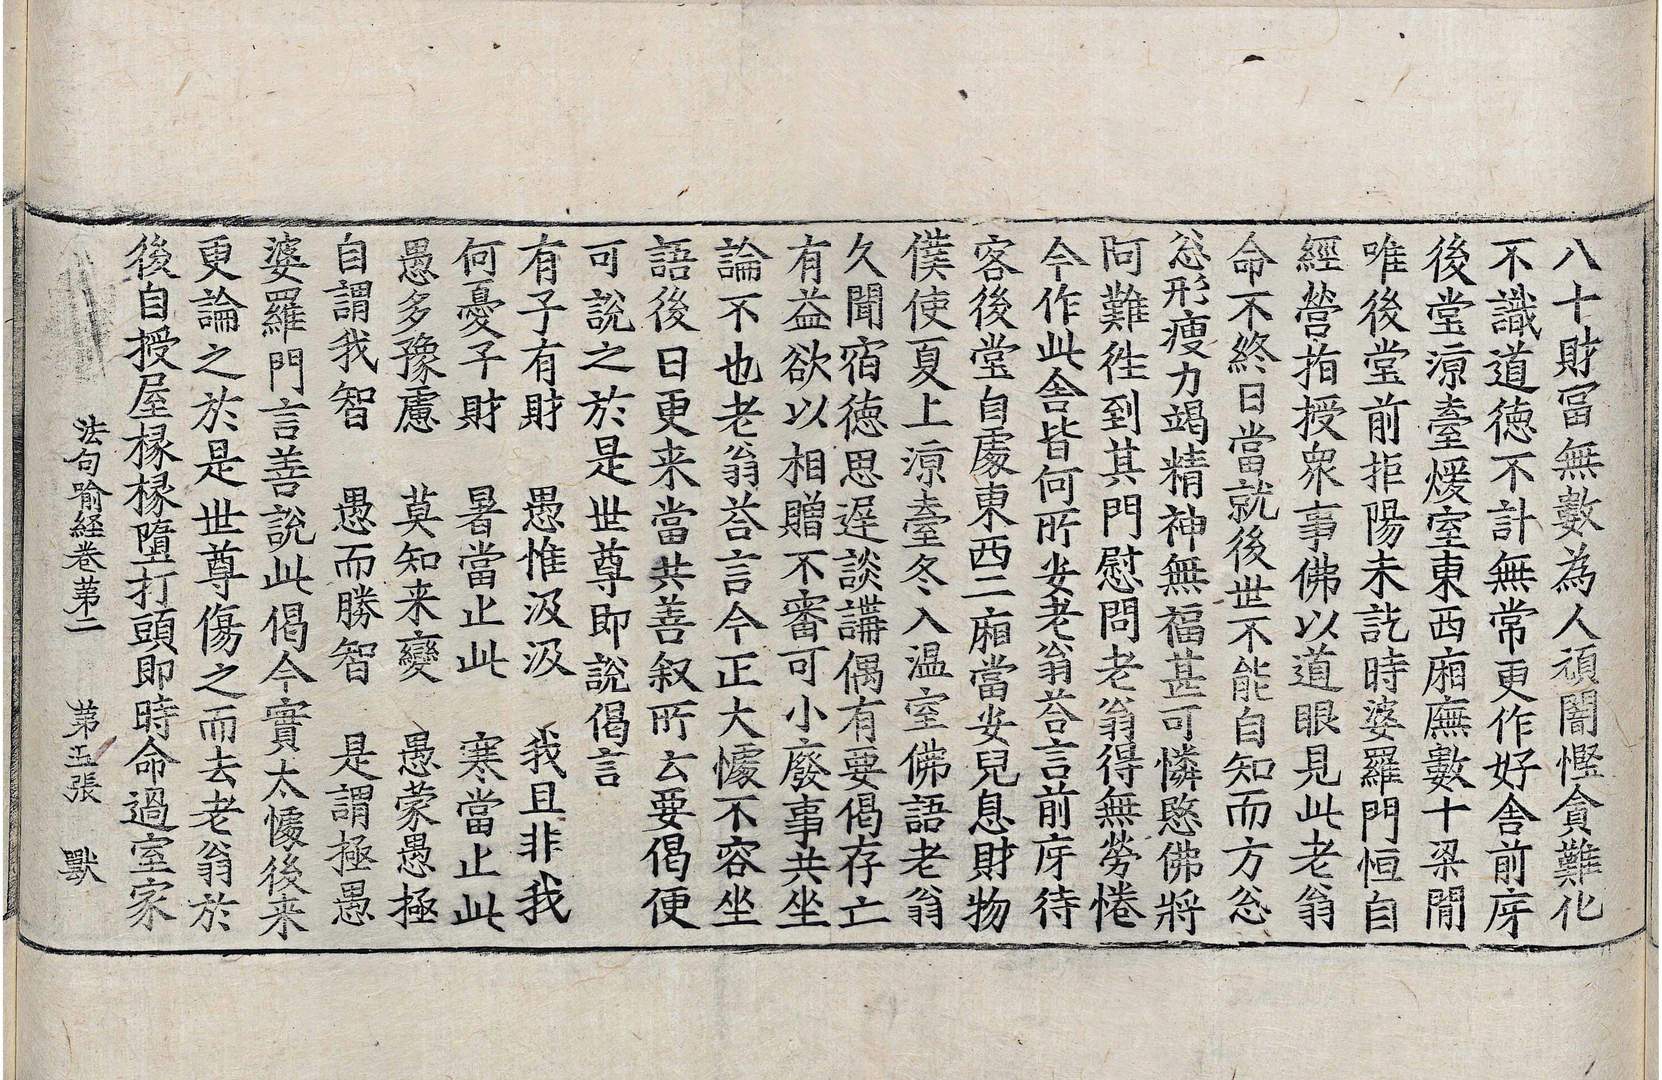 八十財冨無數為人頑闇慳貪難化
不識道德不計無常更作好舎前庌
後堂涼臺煖室東西廂廡數十梁閒
唯後堂前拒陽未訖時婆羅門恒自
經營指授衆事佛以道眼見此老翁
命不終日當就後世不能自知而方忩
忩形瘦力竭精神無福甚可憐愍佛將
阿難徃到其門慰問老翁得無勞惓
今作此舎皆何所安老翁荅言前庌待
客後堂自處東西二廂當安兒息財物
僕使夏上涼臺冬入温室佛語老翁
久聞宿徳思遟談講偶有要偈存亡
有益欲以相贈不審可小廢事共坐
論不也老翁荅言今正大懅不容坐
語後日更来當共善叙所云要偈便
可說之於是世尊即說偈言
有子有財　愚惟汲汲　我且非我
何憂子財　暑當止此　寒當止此
愚多豫慮　莫知来變　愚蒙愚極
自謂我智　愚而勝智　是謂極愚
婆羅門言善說此偈今實太懅後来
更論之於是世尊傷之而去老翁於
後自授屋椽椽墮打頭即時命過室家
法句喻経卷苐二　苐五張　獸